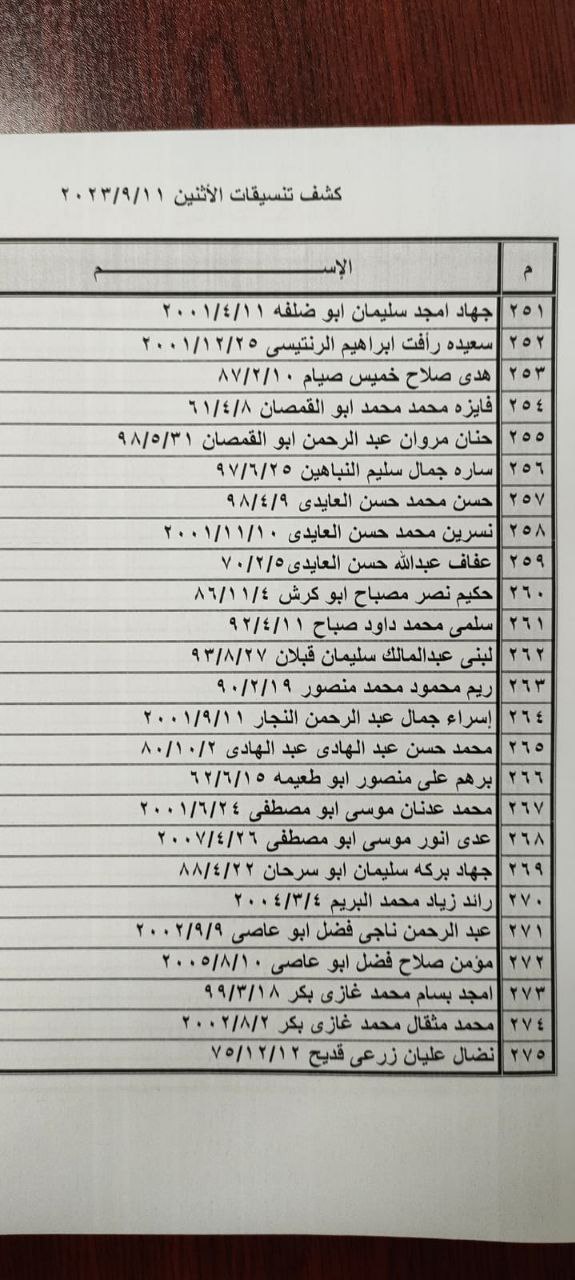 كشف تنسيقات الأثنين ٢٠٢٣/٩/١١
م الإســـــــــم
٢٥١ جهاد امجد سليمان ابو ضلفه ٢٠٠١/٤/١١
٢٥٢ سعيده رأفت ابراهيم الرنتيسى ٢٠٠١/١٢/٢٥
٢٥٣ هدى صلاح خميس صيام ٨٧/٢/١٠
٢٥٤ فايزه محمد محمد ابو القمصان ٦١/٤/٨
٢٥٥ حنان مروان عبد الرحمن ابو القمصان ٩٨/٥/٣١
٢٥٦ ساره جمال سليم النباهين ٩٧/٦/٢٥
٢٥٧ حسن محمد حسن العايدى ٩٨/٤/٩
٢٥٨ نسرين محمد حسن العايدى ٢٠٠١/١١/١٠
٢٥٩ عفاف عبدالله حسن العايدى٧٠/٢/٥
٢٦٠ حكيم نصر مصباح ابو كرش ٨٦/١١/٤
٢٦١ سلمى محمد داود صباح ٩٢/٤/١١
٢٦٢ لبنى عبدالمالك سليمان قبلان ٩٣/٨/٢٧
٢٦٣ ريم محمود محمد منصور ٩٠/٢/١٩
٢٦٤ إسراء جمال عبد الرحمن النجار ٢٠٠١/٩/١١
٢٦٥ محمد حسن عبد الهادى عبد الهادى ٨٠/١٠/٢
٢٦٦ برهم على منصور ابو طعيمه ٦٢/٦/١٥
٢٦٧ محمد عدنان موسى ابو مصطفى ٢٠٠١/٦/٢٤
٢٦٨ عدى انور موسى ابو مصطفى ٢٠٠٧/٤/٢٦
٢٦٩ جهاد بركه سليمان ابو سرحان ٨٨/٤/٢٢
٢٧٠ رائد زياد محمد البريم ٢٠٠٤/٣/٤
٢٧١ عبد الرحمن ناجى فضل ابو عاصى ٢٠٠٢/٩/٩
٢٧٢ مؤمن صلاح فضل ابو عاصى ٢٠٠٥/٨/١٠
٢٧٣ امجد بسام محمد غازى بكر ٩٩/٣/١٨
٢٧٤ محمد مثقال محمد غازى بكر ٢٠٠٢/٨/٢
٢٧٥ نضال عليان زرعى قديح ٧٥/١٢/١٢